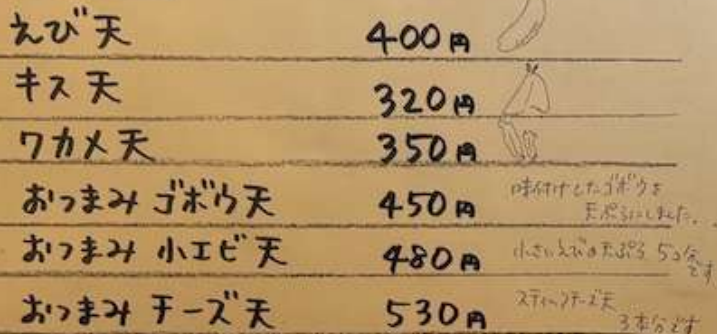 えび天 400円
キス天 320円
ワカメ天 350円
おつまみ ゴボウ天 450円
味付けしたゴボウを
天ぷらにしました。
おつまみ 小エビ天 480円
小さいえびの天ぷら 5コ分
です
おつまみ チーズ天 530円
スティックチーズ天
3本分です